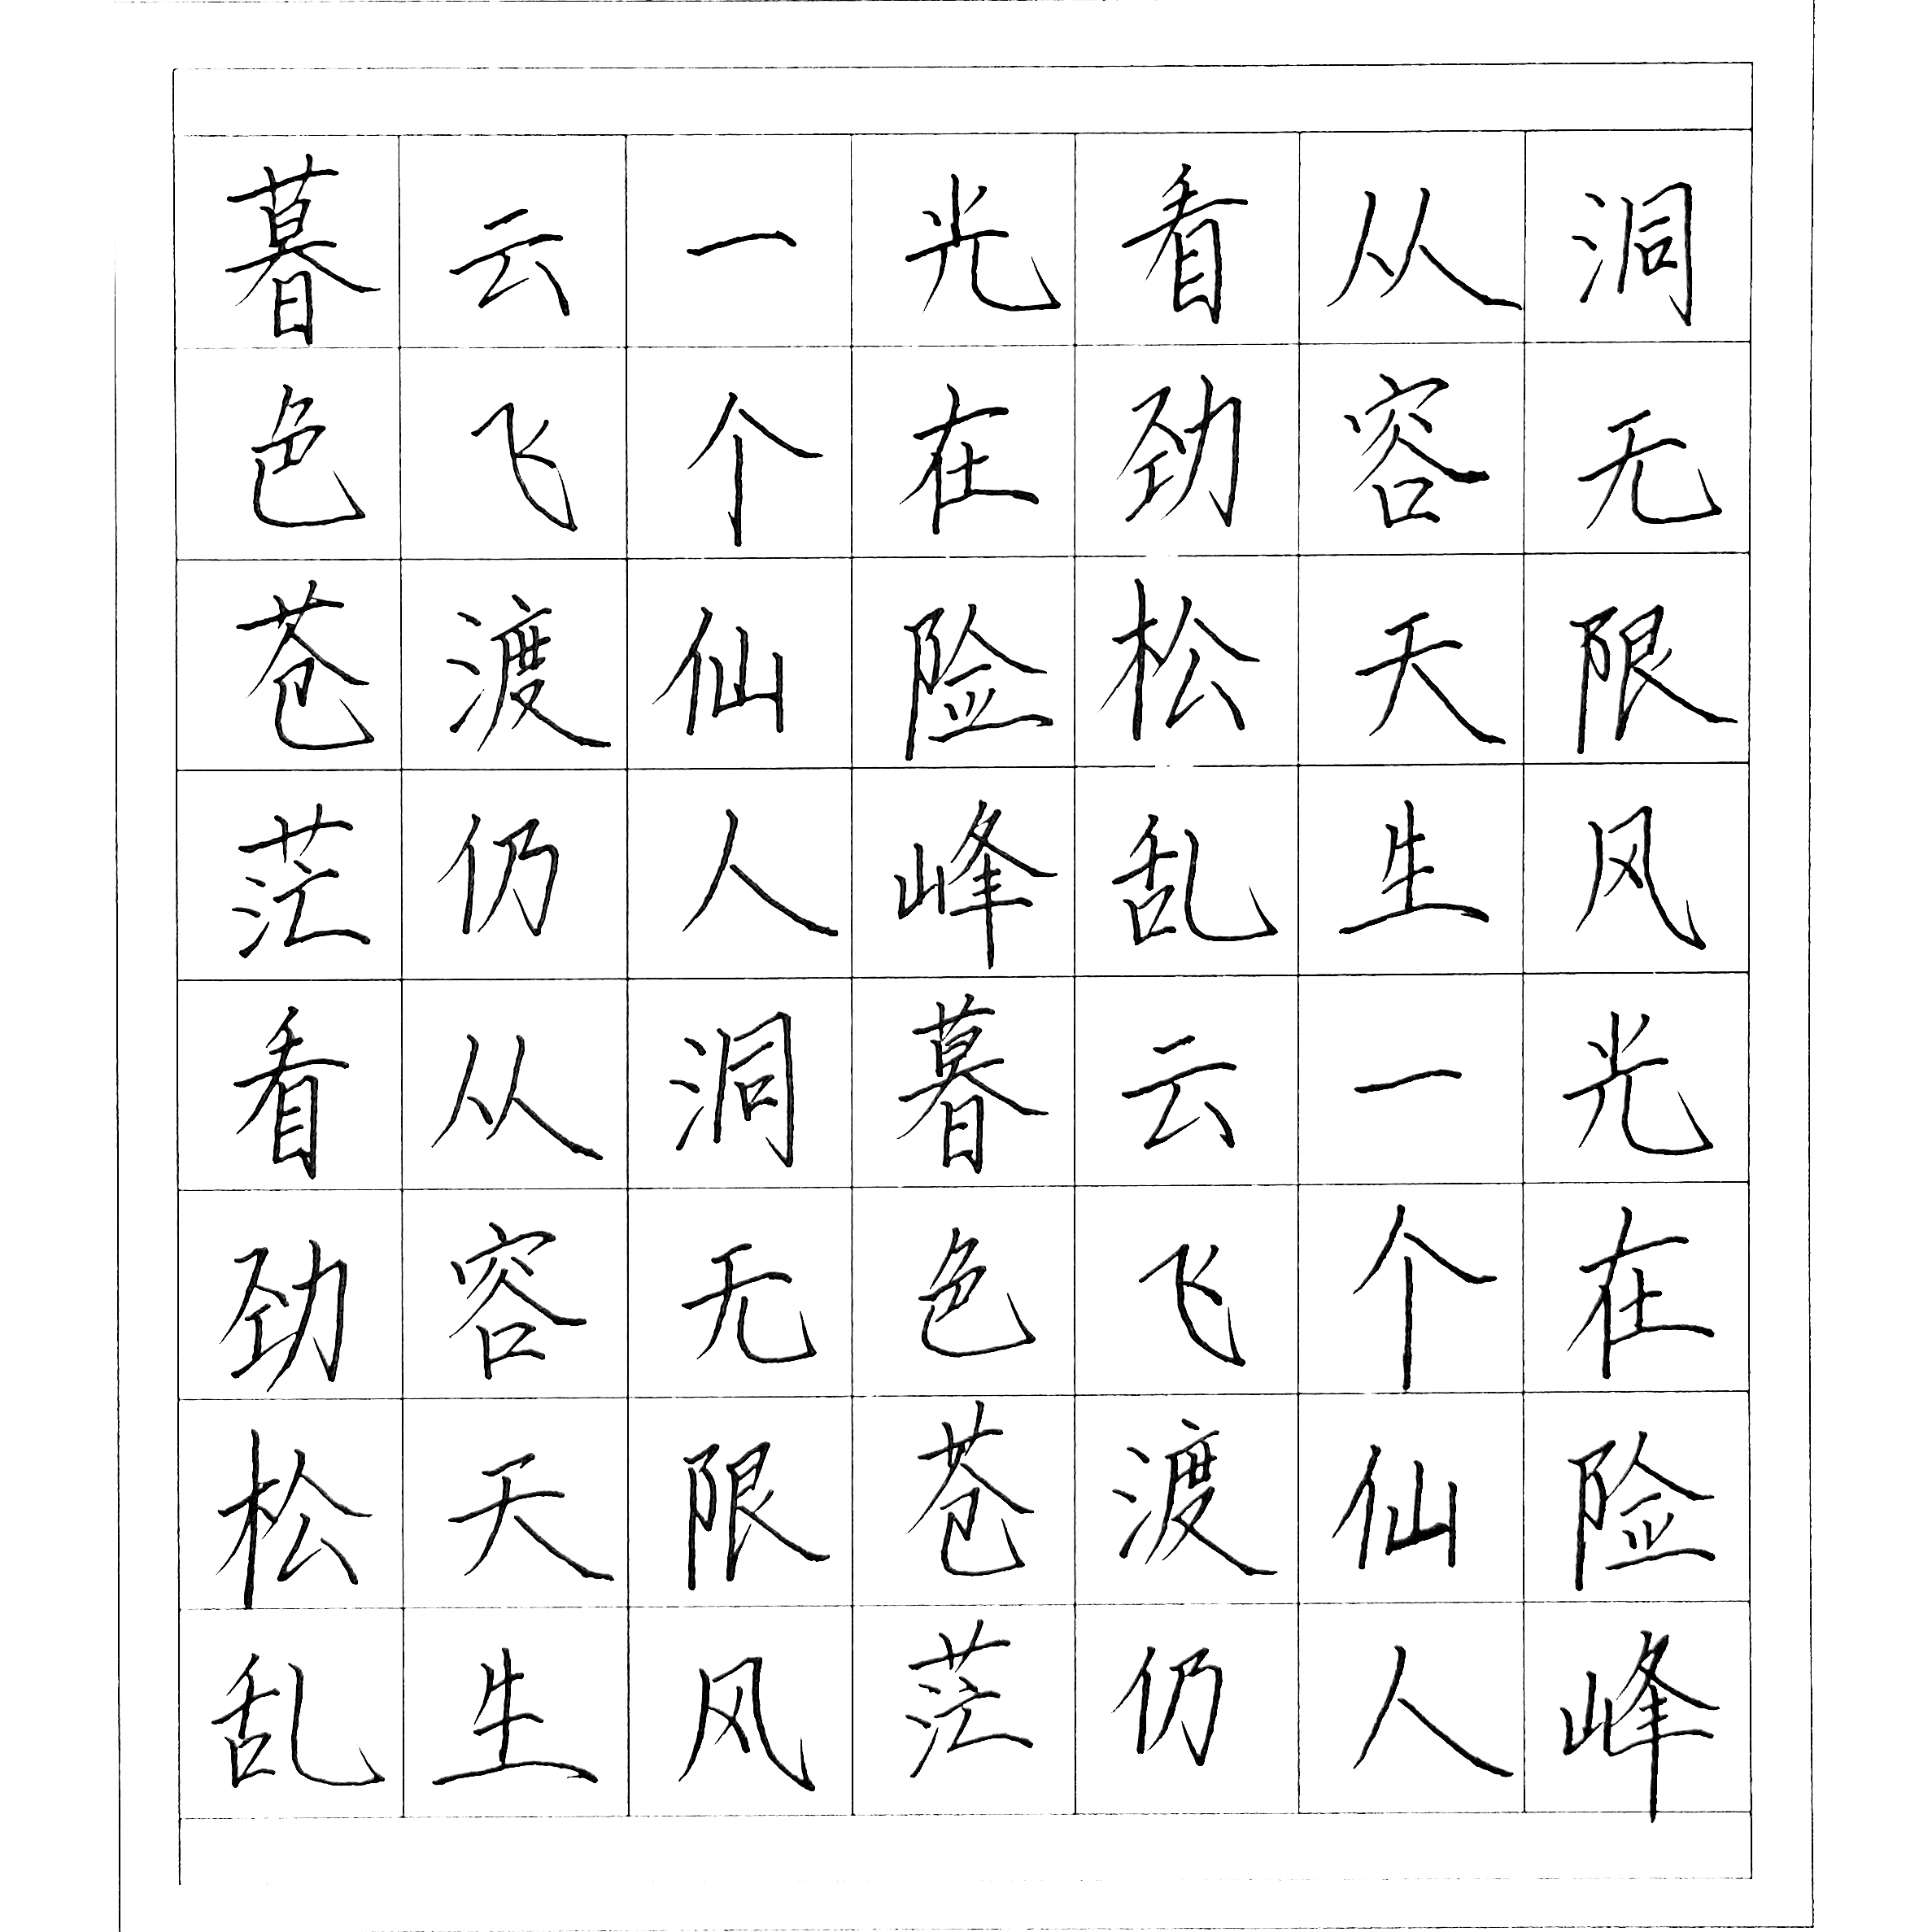 暮色苍茫看劲松乱
云飞渡仍从容天生
一个仙人洞无限风
光在险峰暮色苍茫
看劲松乱云飞渡仍
从容天生一个仙人
洞无限风光在险峰